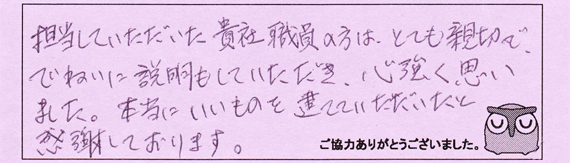 担当していただいた貴社職員の方は、とても親切で、
でねいに説明もしていただき、心強く思い
ました。本当にいいものを建てていただいたと
感謝しております。
ご協力ありがとうございました。